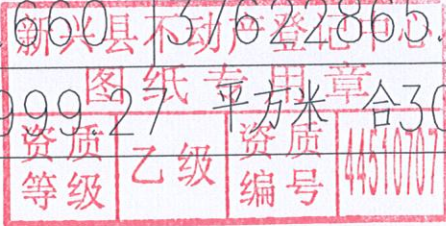 .660 37622865.
新兴县不动产登记中心
图纸专用章
999.27 平方米 合30
资质等级 乙级 资质编号 44510707